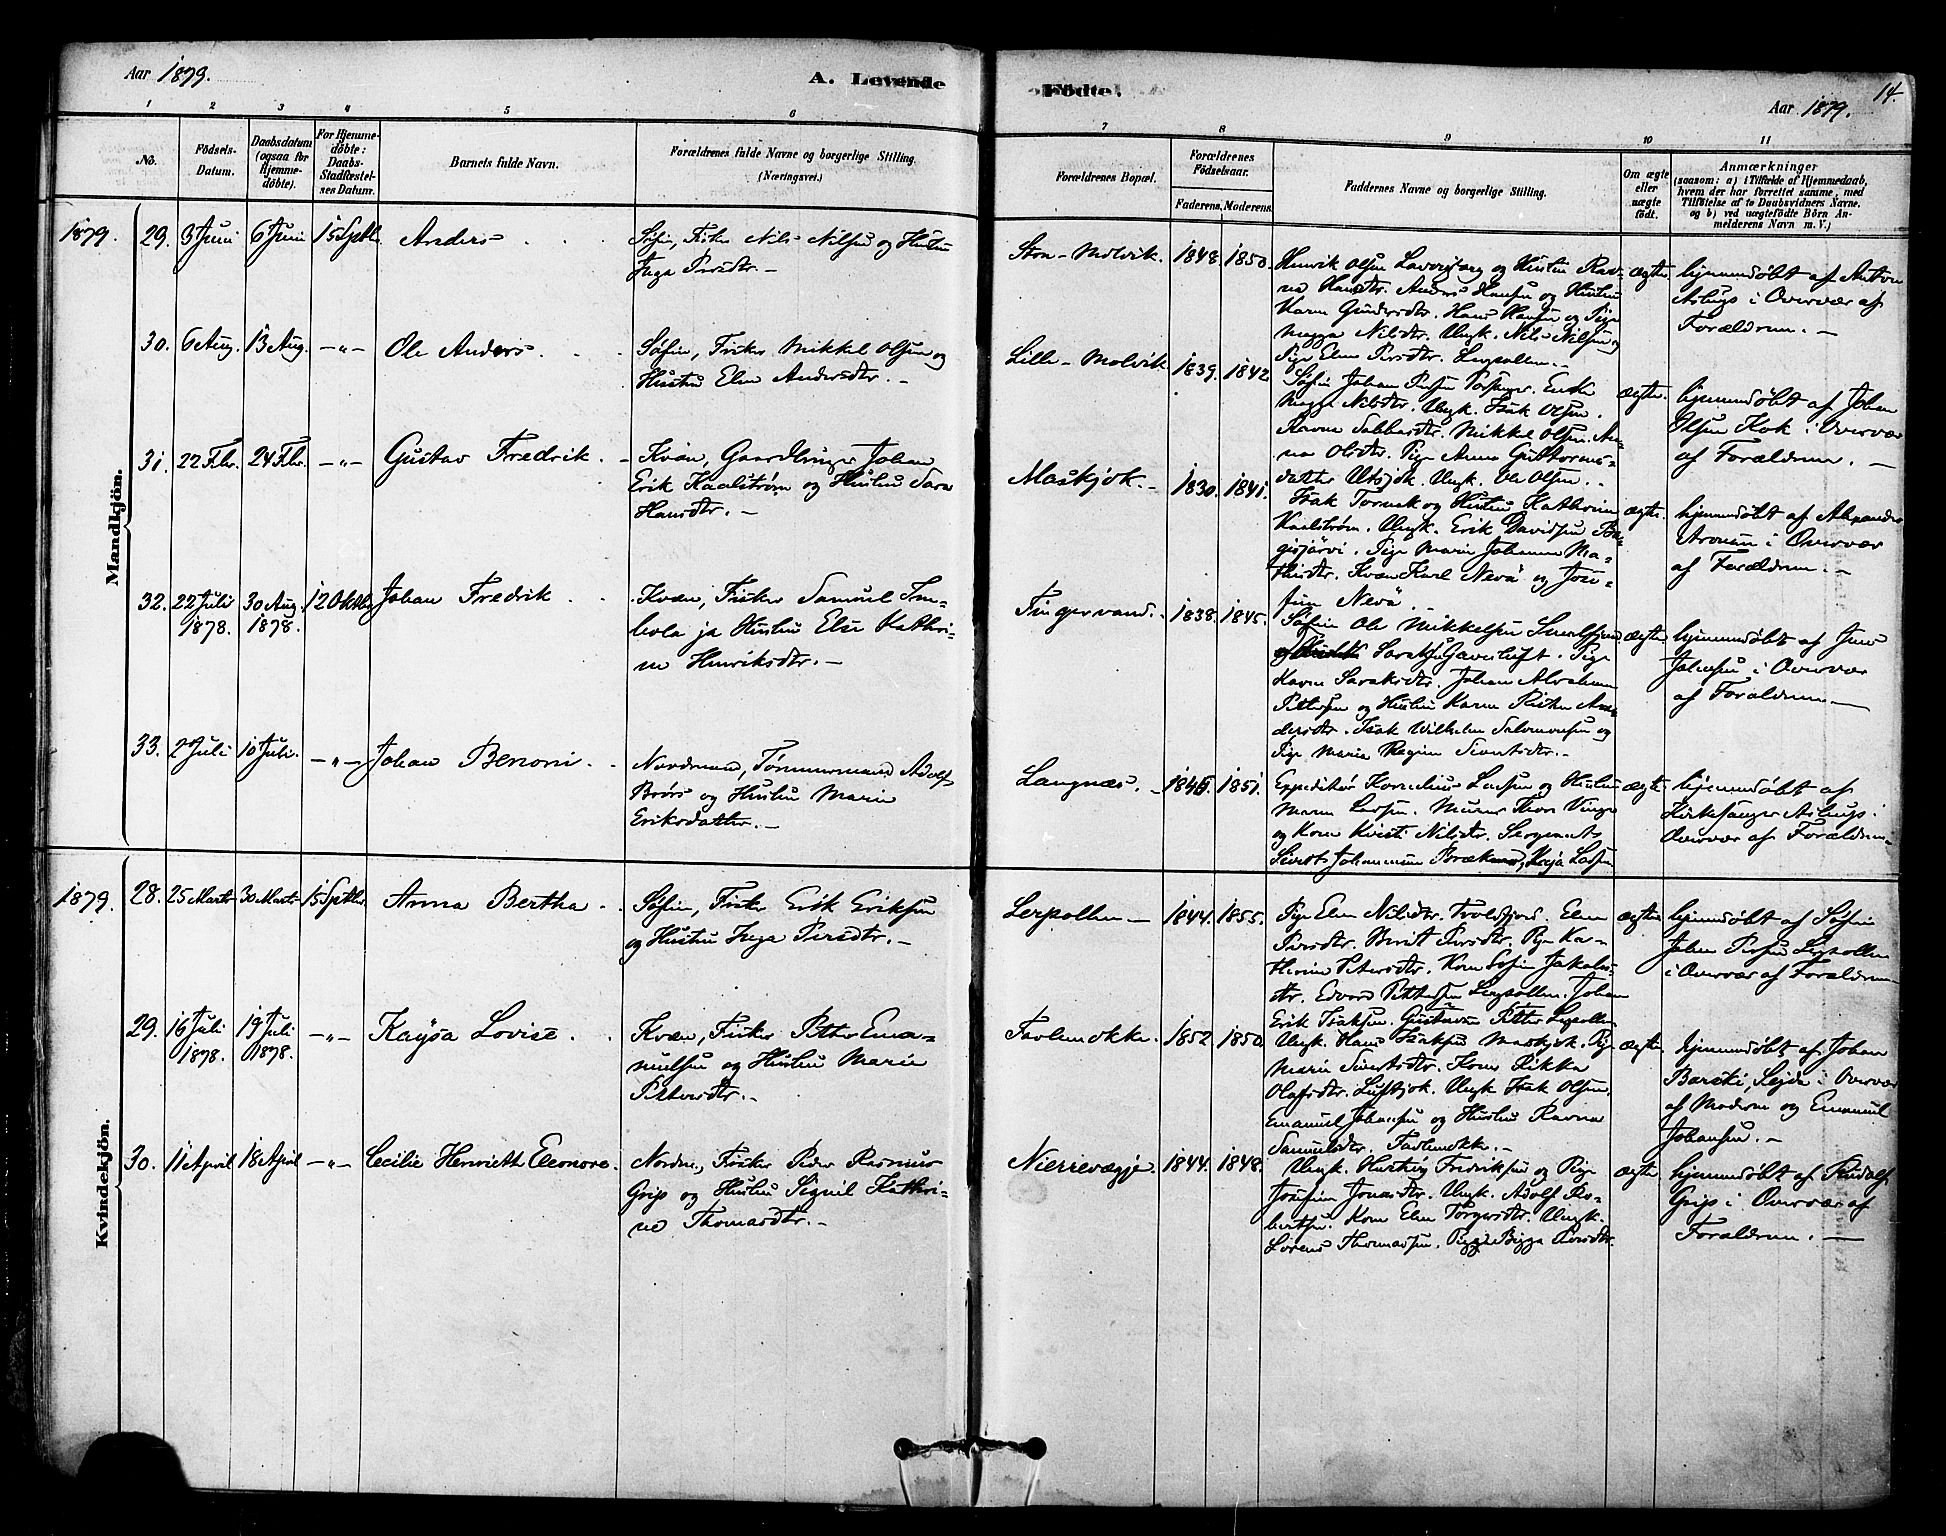 Aar 1879.
A. Levende
Födte.
Aar 1879.
14.
1 2 3 4 5 6 7 8 9 10 11
No.
Födsels-
Datum.
Daabsdatum
(ogsaa for
Hjemme-
döbte).
For Hjemme-
döbte:
Daabs-
Stadfæstel-
ses Datum.
Barnets fulde Navn.
Forældrenes fulde Navne og borgerlige Stilling.
(Næringsvei.)
Forældrenes Bopæl.
Forældrenes
Födselsaar.
Faderens. Moderens.
Faddernes Navne og borgerlige Stilling.
Om ægte
eller
uægte
födt.
Anmærkninger
(saasom: a) i Tilfælde af Hjemmedaab,
hvem der har forrettet samme, med
Tilföielse af to Daabsvidners Navne.
og b) ved uægtefödte Börn An-
melderens Navn m. V.)
Mandkjön.
1879. 29. 3 Juni 6 Juni 15 Septbr. Anders
Søfin, Fisker Nils Nilsen og Hustru
Inga Persdtr. –
Stor-Molvik. 1848. 1850.
Henrik Olsen og Hustru Rav-
na Hansdtr. Anders Hansen og Hustru
Karen Gundersdtr. Hans Hansen og Pige
Magga Nilsdtr. Ungk. Nils Nilsen og
Pige Elen Persdtr. Lerpollen. –
ægte.
hjemmedøbt af Anton
Aslugs i Overvær af
Forældrene. –
30. 6 Aug. 13 Aug. –"– Ole Anders
Søfin, Fisker Mikkel Olsen og
Hustru Elen Andersdtr. –
Lille-Molvik 1839. 1842.
Søfin Johan Persen Enke
Magga Nilsdtr. Ungk. Isak Olsen.
Ravna Mikkel Olsen. An-
na Olsdtr. Pige Anna Guttorms-
datter Utsjok. Ungk. Ole Olsen. –
ægte.
hjemmedøbt af Johan
Olsen Kok i Overvær
af Forældrene. –
31. 22 Fbr. 24 Fbr. –"– Gustav Fredrik.
Kvæn, Gaardbruger Johan
Erik Kaalstrøm og Hustru Sara
Hansdtr. –
Maskjok. – 1830. 1841.
Isak Tornek og Hustru Kathrina
Kaalstrøm. Ungk. Erik Davidsen
Pige Marie Johanna Ma-
thisdtr. Kvæn Karl Nevä og Jose-
fine Nevä.
ægte.
hjemmedøbt af Alexander
Aronsen i Overvær
af Forældrene. –
32. 22 Juli 1878. 30 Aug. 1878. 12 Oktbr. Johan Fredrik
Kvæn, Fisker Samuel
og Hustru Else Kathri-
ne Henriksdtr. –
Fingervand. 1838. 1845.
Søfin Ole Mikkelsen
Pige
Karen Johan Abraham
Pettersen og Hustru Karen An-
dersdtr. Isak Wilhelm Salomonsen og
Pige Marie Regine Sivertsdtr. –
ægte
hjemmedøbt af Jens
Johnsen i Overvær
af Forældrene –
33. 2 Juli 10 Juli. –"– Johan Benoni
Nordmand, Tømmermand Adolf
Brørs og Hustru Marie
Eriksdatter. –
Langnæs. – 1845. 1851.
Expeditør Kornelius Lassen og Hustru
Maren Lassen. Murer Thor Vinge
og Kone Kristi Nilsdtr. Sergeant
Sivert Johannesen Brækmo, Kaja Lassen
ægte
hjemmedøbt af
Kirkesanger Aslugs i
Overvær af Forældrene.
Kvindekjön.
1879. 28. 25 Marts 30 Marts 15 Septbr. Anna Bertha
Søfin, Fisker Erik Eriksen
og Hustru Inga Persdtr. –
Lerpollen – 1844. 1855.
Pige Elen Nilsdtr. Troldfjord. Elen
Persdtr. Berit Persdtr. Pige Ka-
thrine Petersdtr. Kone Sofie Jakobs-
dtr. Edvard Pettersen Lerpollen. Johan
Erik Isaksen. Gustava Petter Lerpollen
ægte
hjemmedøbt af Søfin
John Persen Lerpollen
i Overvær af Forældrene
29. 16 Juli 1878. 19 Juli 1878. –"– Kaysa Lovise
Kvæn, Fisker Petter Ema-
nuelsen og Hustru Marie
Pettersdtr. –
Tavlemokke. 1852 1850.
Ungk. Hans Isaksen Maskjok. Pige
Marie Sivertsdtr. Kone Rikka
Olafsdtr. Luftjok. Ungk. Isak Olsen.
Emanuel Johansen og Hustru Ravna
Samuelsdtr. Tavlemokk. –
ægte.
hjemmedøbt af Johan
Barski, Sejda i Overvær
af Moderen og Emanuel
Johansen. –
30. 11 April 18 April –"– Cecilie Henriette Eleonore.
Nordm., Fisker Peder Rasmus
Grip og Hustru Signil Kathri-
ne Thomasdtr. –
Nierrevægje. 1844. 1848.
Ungk. Hartvig Fredriksen og Pige
Josefine Jonasdtr. Ungk. Adolf Ro-
bertsen. Kone Elen Torgersdtr. Ungk.
Lorens Thomassen. Pige Bigga Persdtr.
ægte.
hjemmedøbt af Rudolf
Grip i Overvær af
Forældrene. –